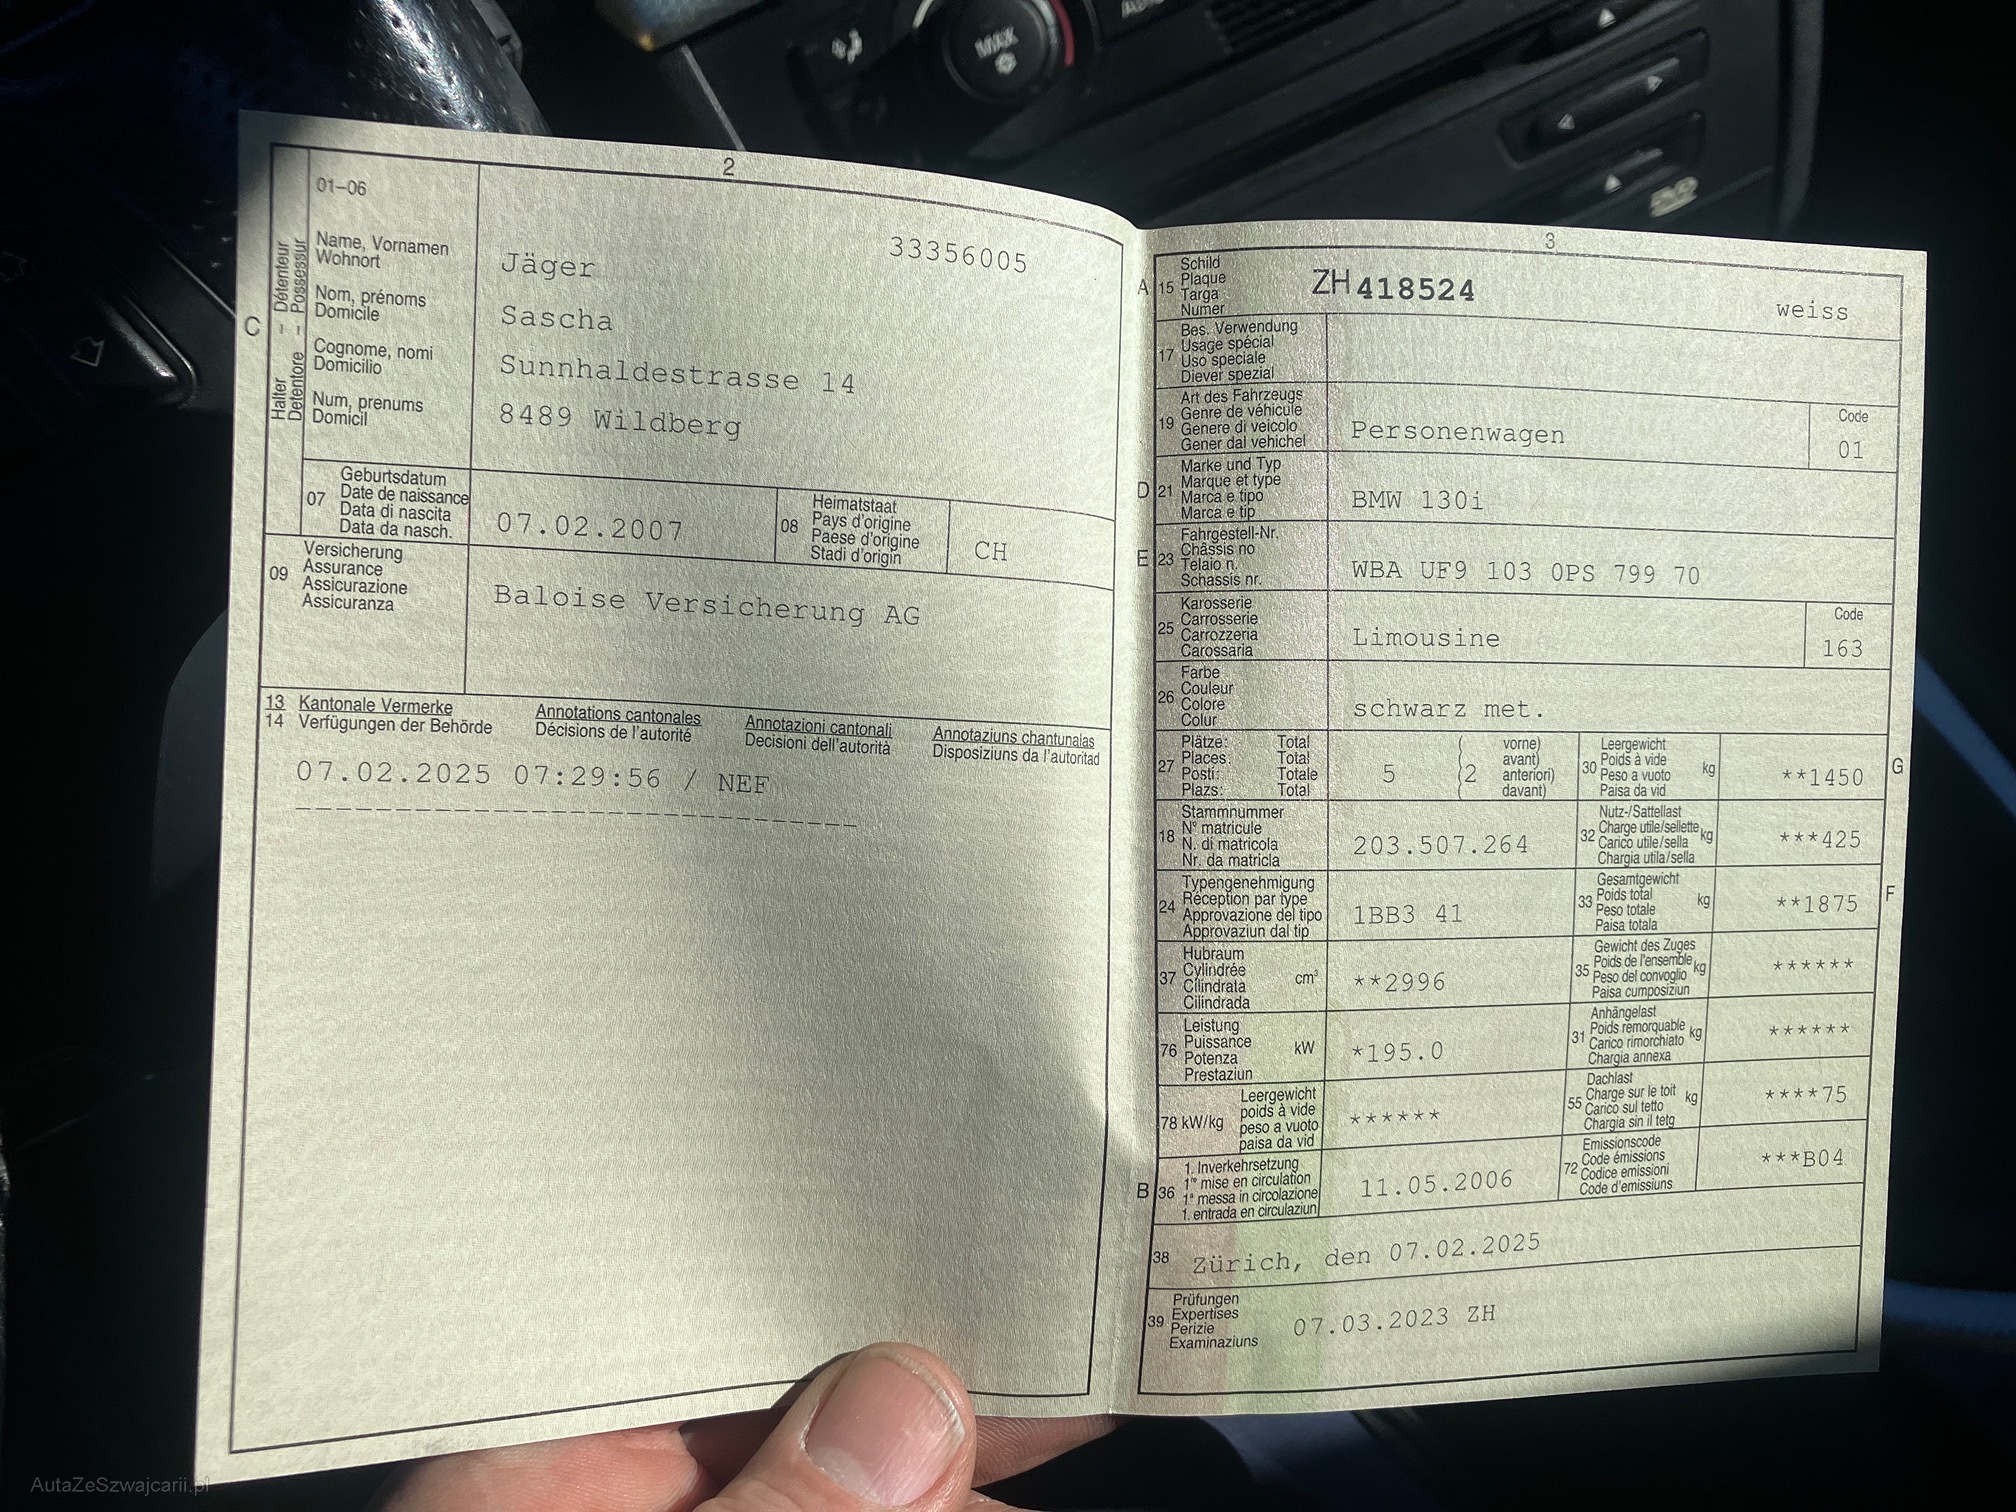 MAX
AUTO
2
01–06
33356005
C
Halter – Détenteur
Detentore – Possessur
Name, Vornamen
Wohnort
Nom, prénoms
Domicile
Cognome, nomi
Domicilio
Num, prenums
Domicil
Jäger
Sascha
Sunnhaldestrasse 14
8489 Wildberg
07
Geburtsdatum
Date de naissance
Data di nascita
Data da nasch.
07.02.2007
08
Heimatstaat
Pays d'origine
Paese d'origine
Stadi d'origin
CH
09
Versicherung
Assurance
Assicurazione
Assicuranza
Baloise Versicherung AG
13 Kantonale Vermerke Annotations cantonales Annotazioni cantonali Annotaziuns chantunalas
14 Verfügungen der Behörde Décisions de l'autorité Decisioni dell'autorità Disposiziuns da l'autoritad
07.02.2025 07:29:56 / NEF
------------------------------
3
A 15
Schild
Plaque
Targa
Numer
ZH 418524
weiss
17
Bes. Verwendung
Usage spécial
Uso speciale
Diever spezial
19
Art des Fahrzeugs
Genre de véhicule
Genere di veicolo
Gener dal vehichel
Personenwagen
Code
01
D 21
Marke und Typ
Marque et type
Marca e tipo
Marca e tip
BMW 130i
E 23
Fahrgestell-Nr.
Châssis no
Telaio n.
Schassis nr.
WBA UF9 103 0PS 799 70
25
Karosserie
Carrosserie
Carrozzeria
Carossaria
Limousine
Code
163
26
Farbe
Couleur
Colore
Colur
schwarz met.
27
Plätze: Total
Places: Total
Posti: Totale
Plazs: Total
5
(2
vorne)
avant)
anteriori)
davant)
30
Leergewicht
Poids à vide
Peso a vuoto
Paisa da vid
kg
**1450
G
18
Stammnummer
N° matricule
N. di matricola
Nr. da matricla
203.507.264
32
Nutz-/Sattellast
Charge utile/sellette
Carico utile/sella
Chargia utila/sella
kg
***425
24
Typengenehmigung
Réception par type
Approvazione del tipo
Approvaziun dal tip
1BB3 41
33
Gesamtgewicht
Poids total
Peso totale
Paisa totala
kg
**1875
F
37
Hubraum
Cylindrée
Cilindrata
Cilindrada
cm³
**2996
35
Gewicht des Zuges
Poids de l'ensemble
Peso del convoglio
Paisa cumposiziun
kg
******
76
Leistung
Puissance
Potenza
Prestaziun
kW
*195.0
31
Anhängelast
Poids remorquable
Carico rimorchiato
Chargia annexa
kg
******
78 kW/kg
Leergewicht
poids à vide
peso a vuoto
paisa da vid
******
55
Dachlast
Charge sur le toit
Carico sul tetto
Chargia sin il tetg
kg
****75
B 36
1. Inverkehrsetzung
1re mise en circulation
1a messa in circolazione
1. entrada en circulaziun
11.05.2006
72
Emissionscode
Code émissions
Codice emissioni
Code d'emissiuns
***B04
38
Zürich, den 07.02.2025
39
Prüfungen
Expertises
Perizie
Examinaziuns
07.03.2023 ZH
AutaZeSzwajcarii.pl